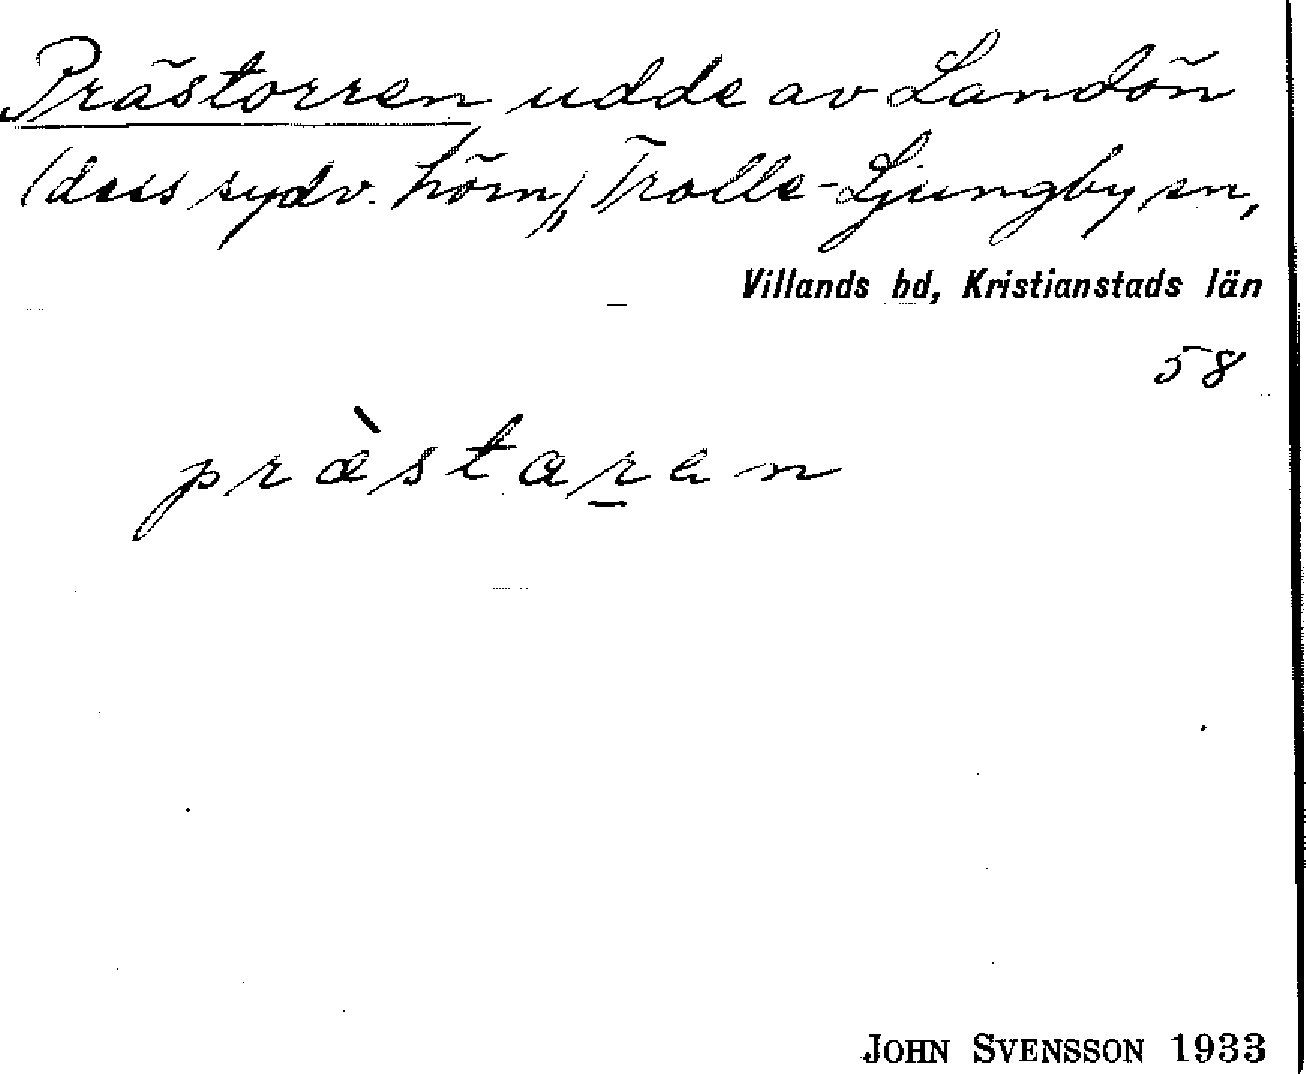 Prästorren udde av Landön
(dess sydv. hörn), Trolle-Ljungby sn,
Villands hd, Kristianstads län
58
præ̀staren
John Svensson 1933